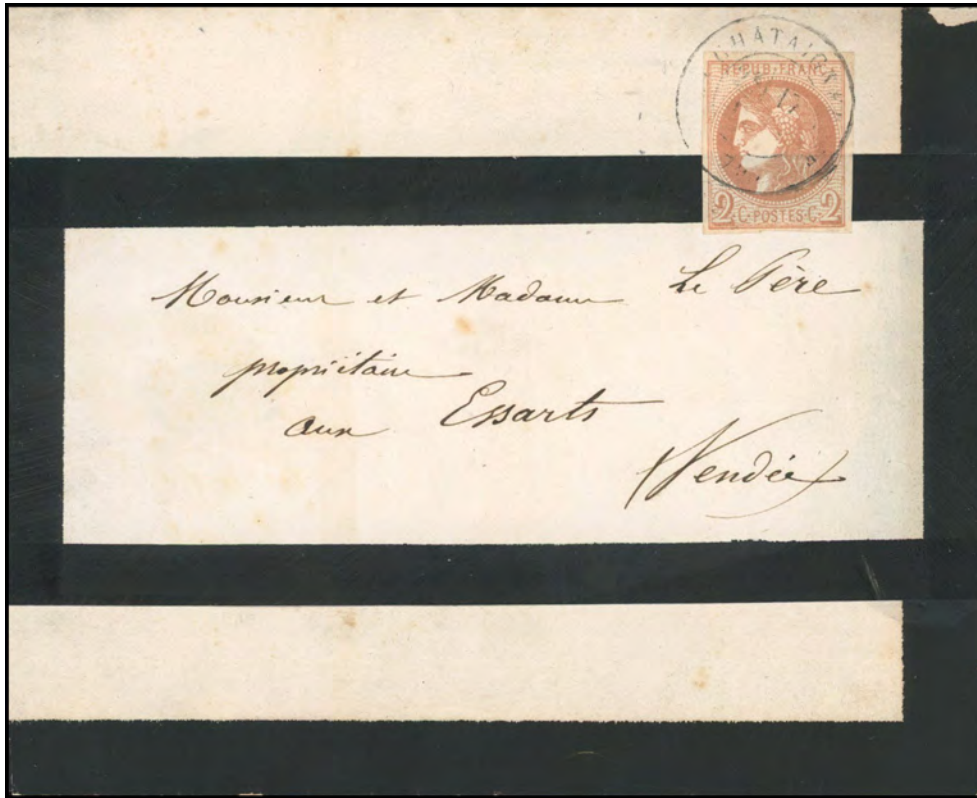 REPUB·FRANC
2·C·POSTES·C·2
Monsieur et Madame Le Père
propriétaire
aux Essarts
(Vendée)